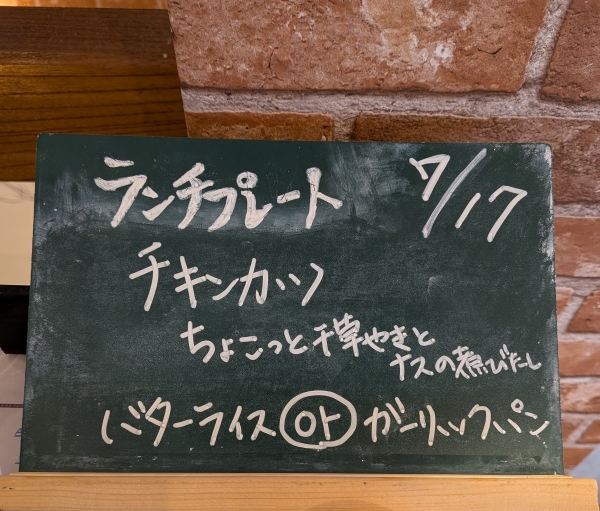 ランチプレート 7/17
チキンカツ
ちょこっと千草やきと
ナスの煮びたし
バターライス or ガーリックパン